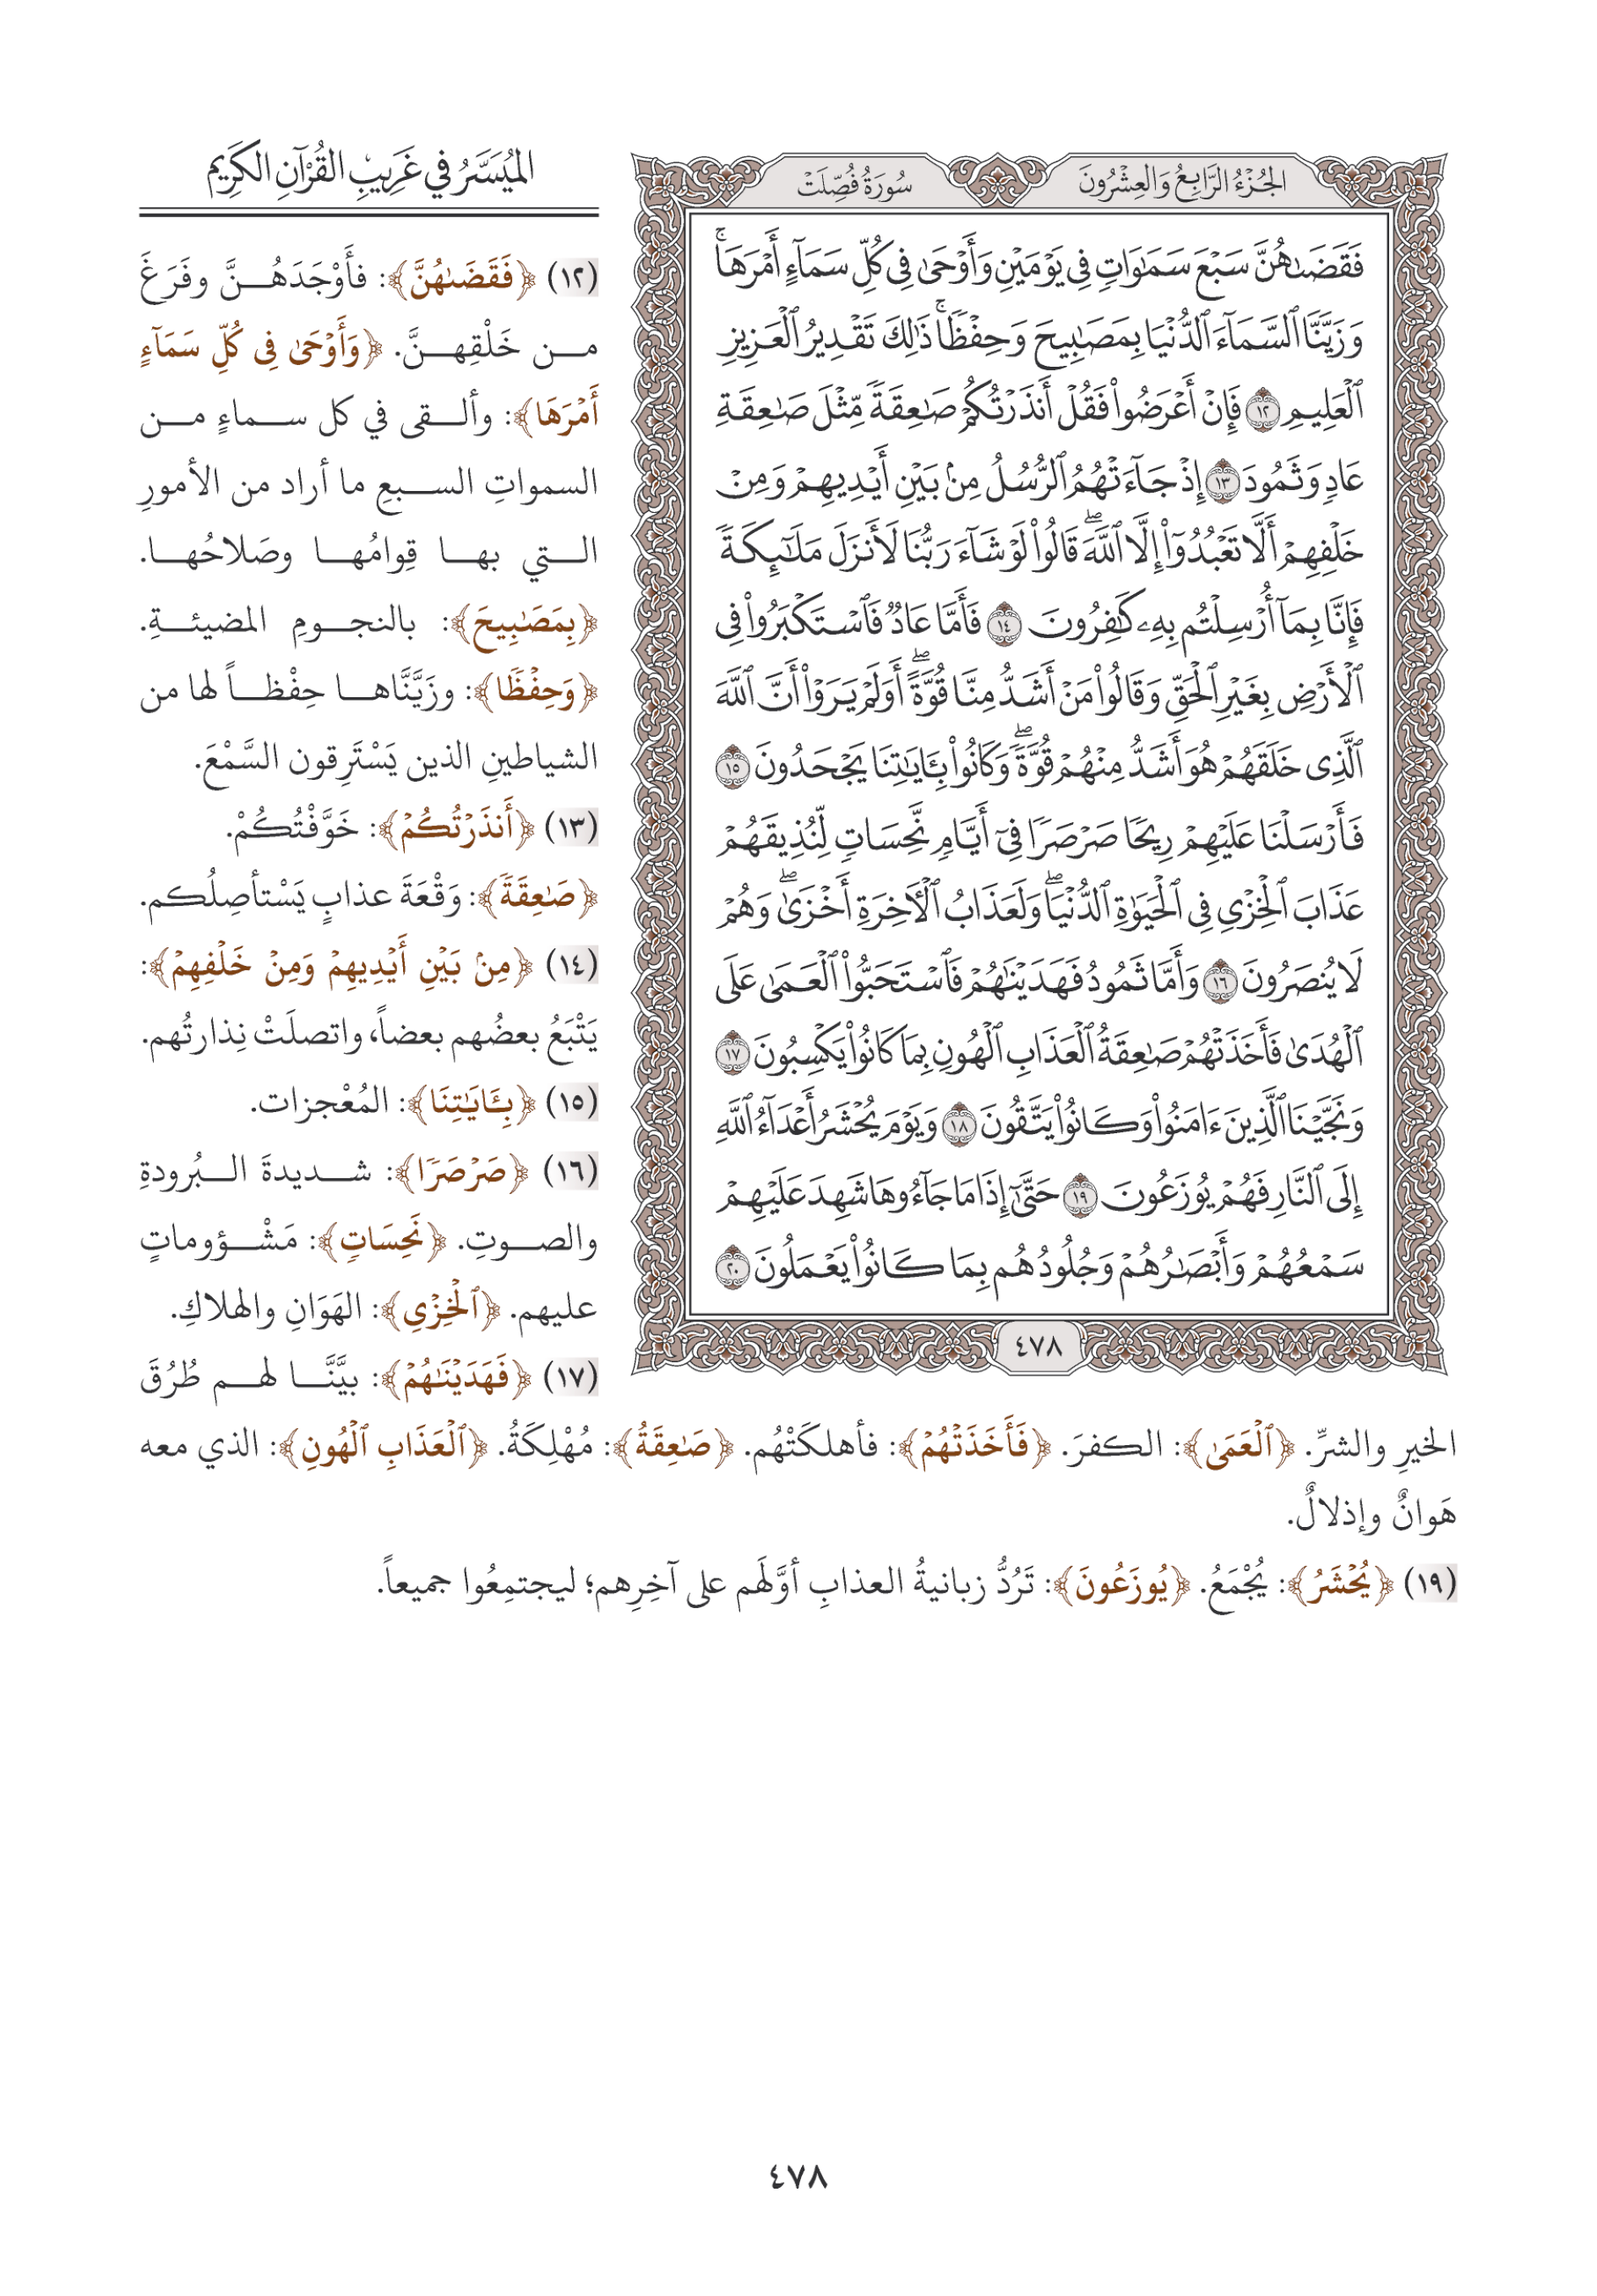 الجُزْءُ الرَّابِعُ وَالعِشْرُونَ
سُورَةُ فُصِّلَتْ
فَقَضَىٰهُنَّ سَبْعَ سَمَٰوَاتٖ فِي يَوْمَيْنِ وَأَوْحَىٰ فِي كُلِّ سَمَآءٍ أَمْرَهَاۚ
وَزَيَّنَّا ٱلسَّمَآءَ ٱلدُّنْيَا بِمَصَٰبِيحَ وَحِفْظٗاۚ ذَٰلِكَ تَقْدِيرُ ٱلْعَزِيزِ
ٱلْعَلِيمِ ١٢ فَإِنْ أَعْرَضُواْ فَقُلْ أَنذَرْتُكُمْ صَٰعِقَةٗ مِّثْلَ صَٰعِقَةِ
عَادٖ وَثَمُودَ ١٣ إِذْ جَآءَتْهُمُ ٱلرُّسُلُ مِنۢ بَيْنِ أَيْدِيهِمْ وَمِنْ
خَلْفِهِمْ أَلَّا تَعْبُدُوٓاْ إِلَّا ٱللَّهَۖ قَالُواْ لَوْ شَآءَ رَبُّنَا لَأَنزَلَ مَلَٰٓئِكَةٗ
فَإِنَّا بِمَآ أُرْسِلْتُم بِهِۦ كَٰفِرُونَ ١٤ فَأَمَّا عَادٞ فَٱسْتَكْبَرُواْ فِي
ٱلْأَرْضِ بِغَيْرِ ٱلْحَقِّ وَقَالُواْ مَنْ أَشَدُّ مِنَّا قُوَّةًۖ أَوَلَمْ يَرَوْاْ أَنَّ ٱللَّهَ
ٱلَّذِي خَلَقَهُمْ هُوَ أَشَدُّ مِنْهُمْ قُوَّةٗۖ وَكَانُواْ بِـَٔايَٰتِنَا يَجْحَدُونَ ١٥
فَأَرْسَلْنَا عَلَيْهِمْ رِيحٗا صَرْصَرٗا فِيٓ أَيَّامٖ نَّحِسَاتٖ لِّنُذِيقَهُمْ
عَذَابَ ٱلْخِزْيِ فِي ٱلْحَيَوٰةِ ٱلدُّنْيَاۖ وَلَعَذَابُ ٱلْأٓخِرَةِ أَخْزَىٰۖ وَهُمْ
لَا يُنصَرُونَ ١٦ وَأَمَّا ثَمُودُ فَهَدَيْنَٰهُمْ فَٱسْتَحَبُّواْ ٱلْعَمَىٰ عَلَى
ٱلْهُدَىٰ فَأَخَذَتْهُمْ صَٰعِقَةُ ٱلْعَذَابِ ٱلْهُونِ بِمَا كَانُواْ يَكْسِبُونَ ١٧
وَنَجَّيْنَا ٱلَّذِينَ ءَامَنُواْ وَكَانُواْ يَتَّقُونَ ١٨ وَيَوْمَ يُحْشَرُ أَعْدَآءُ ٱللَّهِ
إِلَى ٱلنَّارِ فَهُمْ يُوزَعُونَ ١٩ حَتَّىٰٓ إِذَا مَا جَآءُوهَا شَهِدَ عَلَيْهِمْ
سَمْعُهُمْ وَأَبْصَٰرُهُمْ وَجُلُودُهُم بِمَا كَانُواْ يَعْمَلُونَ ٢٠
٤٧٨
المُيَسَّرُ في غَرِيبِ القُرْآنِ الكَرِيم
(١٢) ﴿فَقَضَىٰهُنَّ﴾: فأَوْجَدَهُنَّ وفَرَغَ
من خَلْقِهنَّ. ﴿وَأَوْحَىٰ فِي كُلِّ سَمَآءٍ
أَمْرَهَا﴾: وألقى في كل سماءٍ من
السمواتِ السبعِ ما أراد من الأمورِ
التي بها قِوامُها وصَلاحُها.
﴿بِمَصَٰبِيحَ﴾: بالنجومِ المضيئةِ.
﴿وَحِفْظٗا﴾: وزَيَّنَّاها حِفْظاً لها من
الشياطينِ الذين يَسْتَرِقون السَّمْعَ.
(١٣) ﴿أَنذَرْتُكُمْ﴾: خَوَّفْتُكُمْ.
﴿صَٰعِقَةٗ﴾: وَقْعَةَ عذابٍ يَسْتأصِلُكم.
(١٤) ﴿مِنۢ بَيْنِ أَيْدِيهِمْ وَمِنْ خَلْفِهِمْ﴾:
يَتْبَعُ بعضُهم بعضاً، واتصلَتْ نِذارتُهم.
(١٥) ﴿بِـَٔايَٰتِنَا﴾: المُعْجزات.
(١٦) ﴿صَرْصَرٗا﴾: شديدةَ البُرودةِ
والصوتِ. ﴿نَّحِسَاتٖ﴾: مَشْؤوماتٍ
عليهم. ﴿ٱلْخِزْيِ﴾: الهَوَانِ والهلاكِ.
(١٧) ﴿فَهَدَيْنَٰهُمْ﴾: بيَّنَّا لهم طُرُقَ
الخيرِ والشرِّ. ﴿ٱلْعَمَىٰ﴾: الكفرَ. ﴿فَأَخَذَتْهُمْ﴾: فأهلكَتْهُم. ﴿صَٰعِقَةُ﴾: مُهْلِكَةُ. ﴿ٱلْعَذَابِ ٱلْهُونِ﴾: الذي معه
هَوانٌ وإذلالٌ.
(١٩) ﴿يُحْشَرُ﴾: يُجْمَعُ. ﴿يُوزَعُونَ﴾: تَرُدُّ زبانيةُ العذابِ أوَّلَهم على آخِرِهم؛ ليجتمِعُوا جميعاً.
٤٧٨